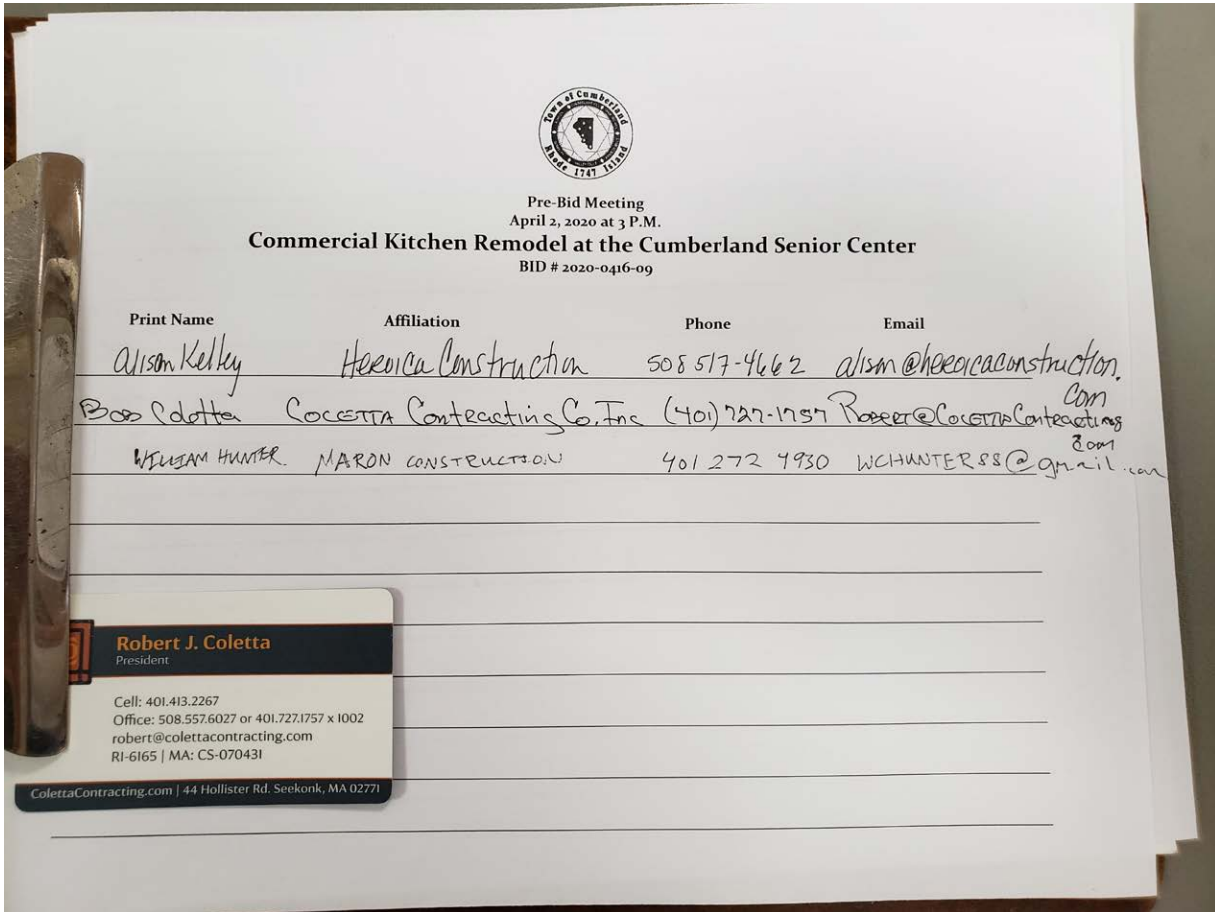 Town of Cumberland
Rhode 1747 Island
Pre-Bid Meeting
April 2, 2020 at 3 P.M.
Commercial Kitchen Remodel at the Cumberland Senior Center
BID # 2020-0416-09
Print Name Affiliation Phone Email
Alison Kelley Heroica Construction 508 517-4662 alison@heroicaconstruction.
com
Bob Coletta Coletta Contracting Co, Inc (401) 727-1757 Robert@ColettaContracting
com
WILLIAM HUNTER. MARON CONSTRUCTION 401 272 4930 WCHUNTER88@gmail.com
Robert J. Coletta
President
Cell: 401.413.2267
Office: 508.557.6027 or 401.727.1757 x 1002
robert@colettacontracting.com
RI-6165 | MA: CS-070431
ColettaContracting.com | 44 Hollister Rd. Seekonk, MA 02771